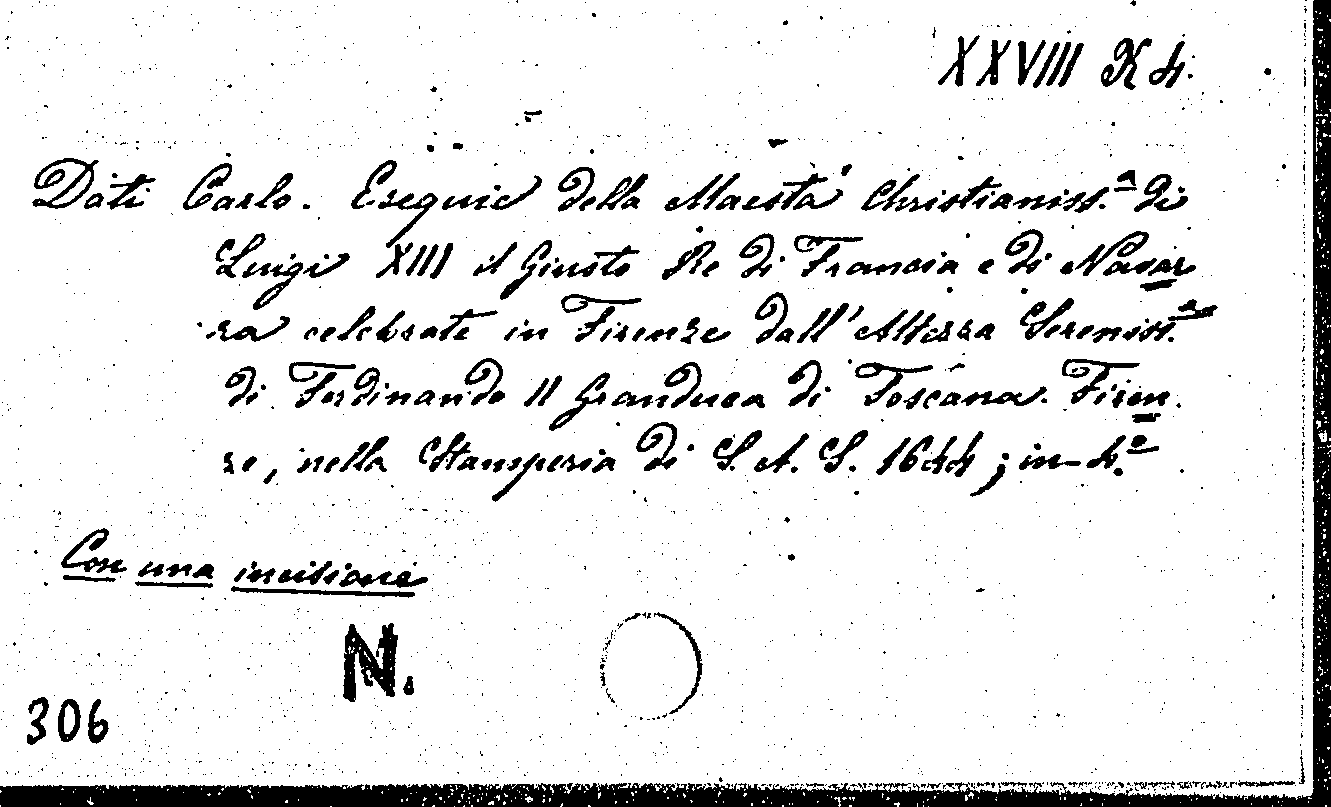 XXVIII K 4.
Dati Carlo. Esequie della Maestà Christianiss.ª di
Luigi XIII il Giusto Re di Francia e di Navar
ra celebrate in Firenze dall'Altezza Sereniss.ª
di Ferdinando II Granduca di Toscana. Firen
ze, nella Stamperia di S. A. S. 1644; in-4.º
Con una incisione
N.
306